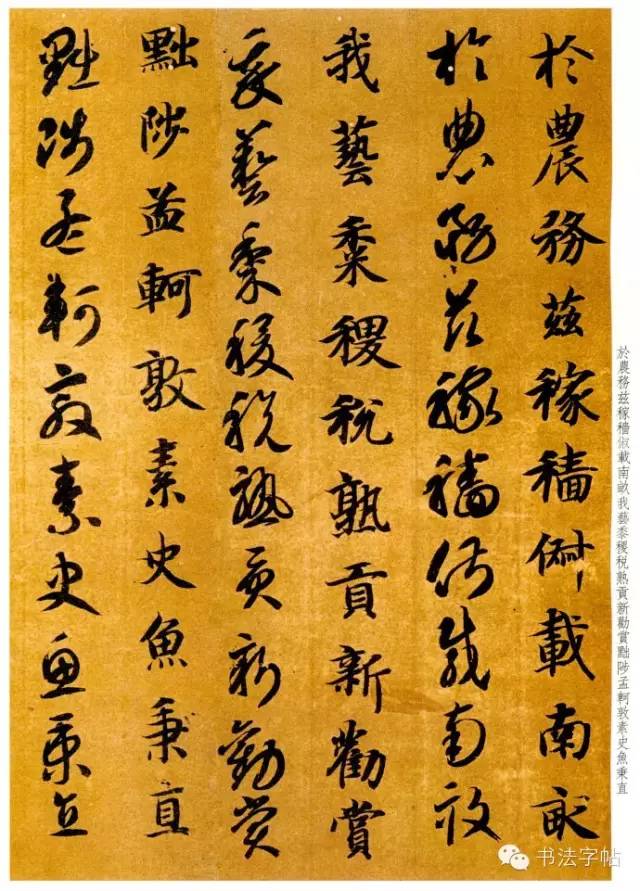 於農務茲稼穡俶載南畝
於農務茲稼穡俶載南畝
我藝黍稷稅熟貢新勸賞
我藝黍稷稅熟貢新勸賞
黜陟孟軻敦素史魚秉直
黜陟孟軻敦素史魚秉直
於農務茲稼穡俶載南畝我藝黍稷稅熟貢新勸賞黜陟孟軻敦素史魚秉直
书法字帖